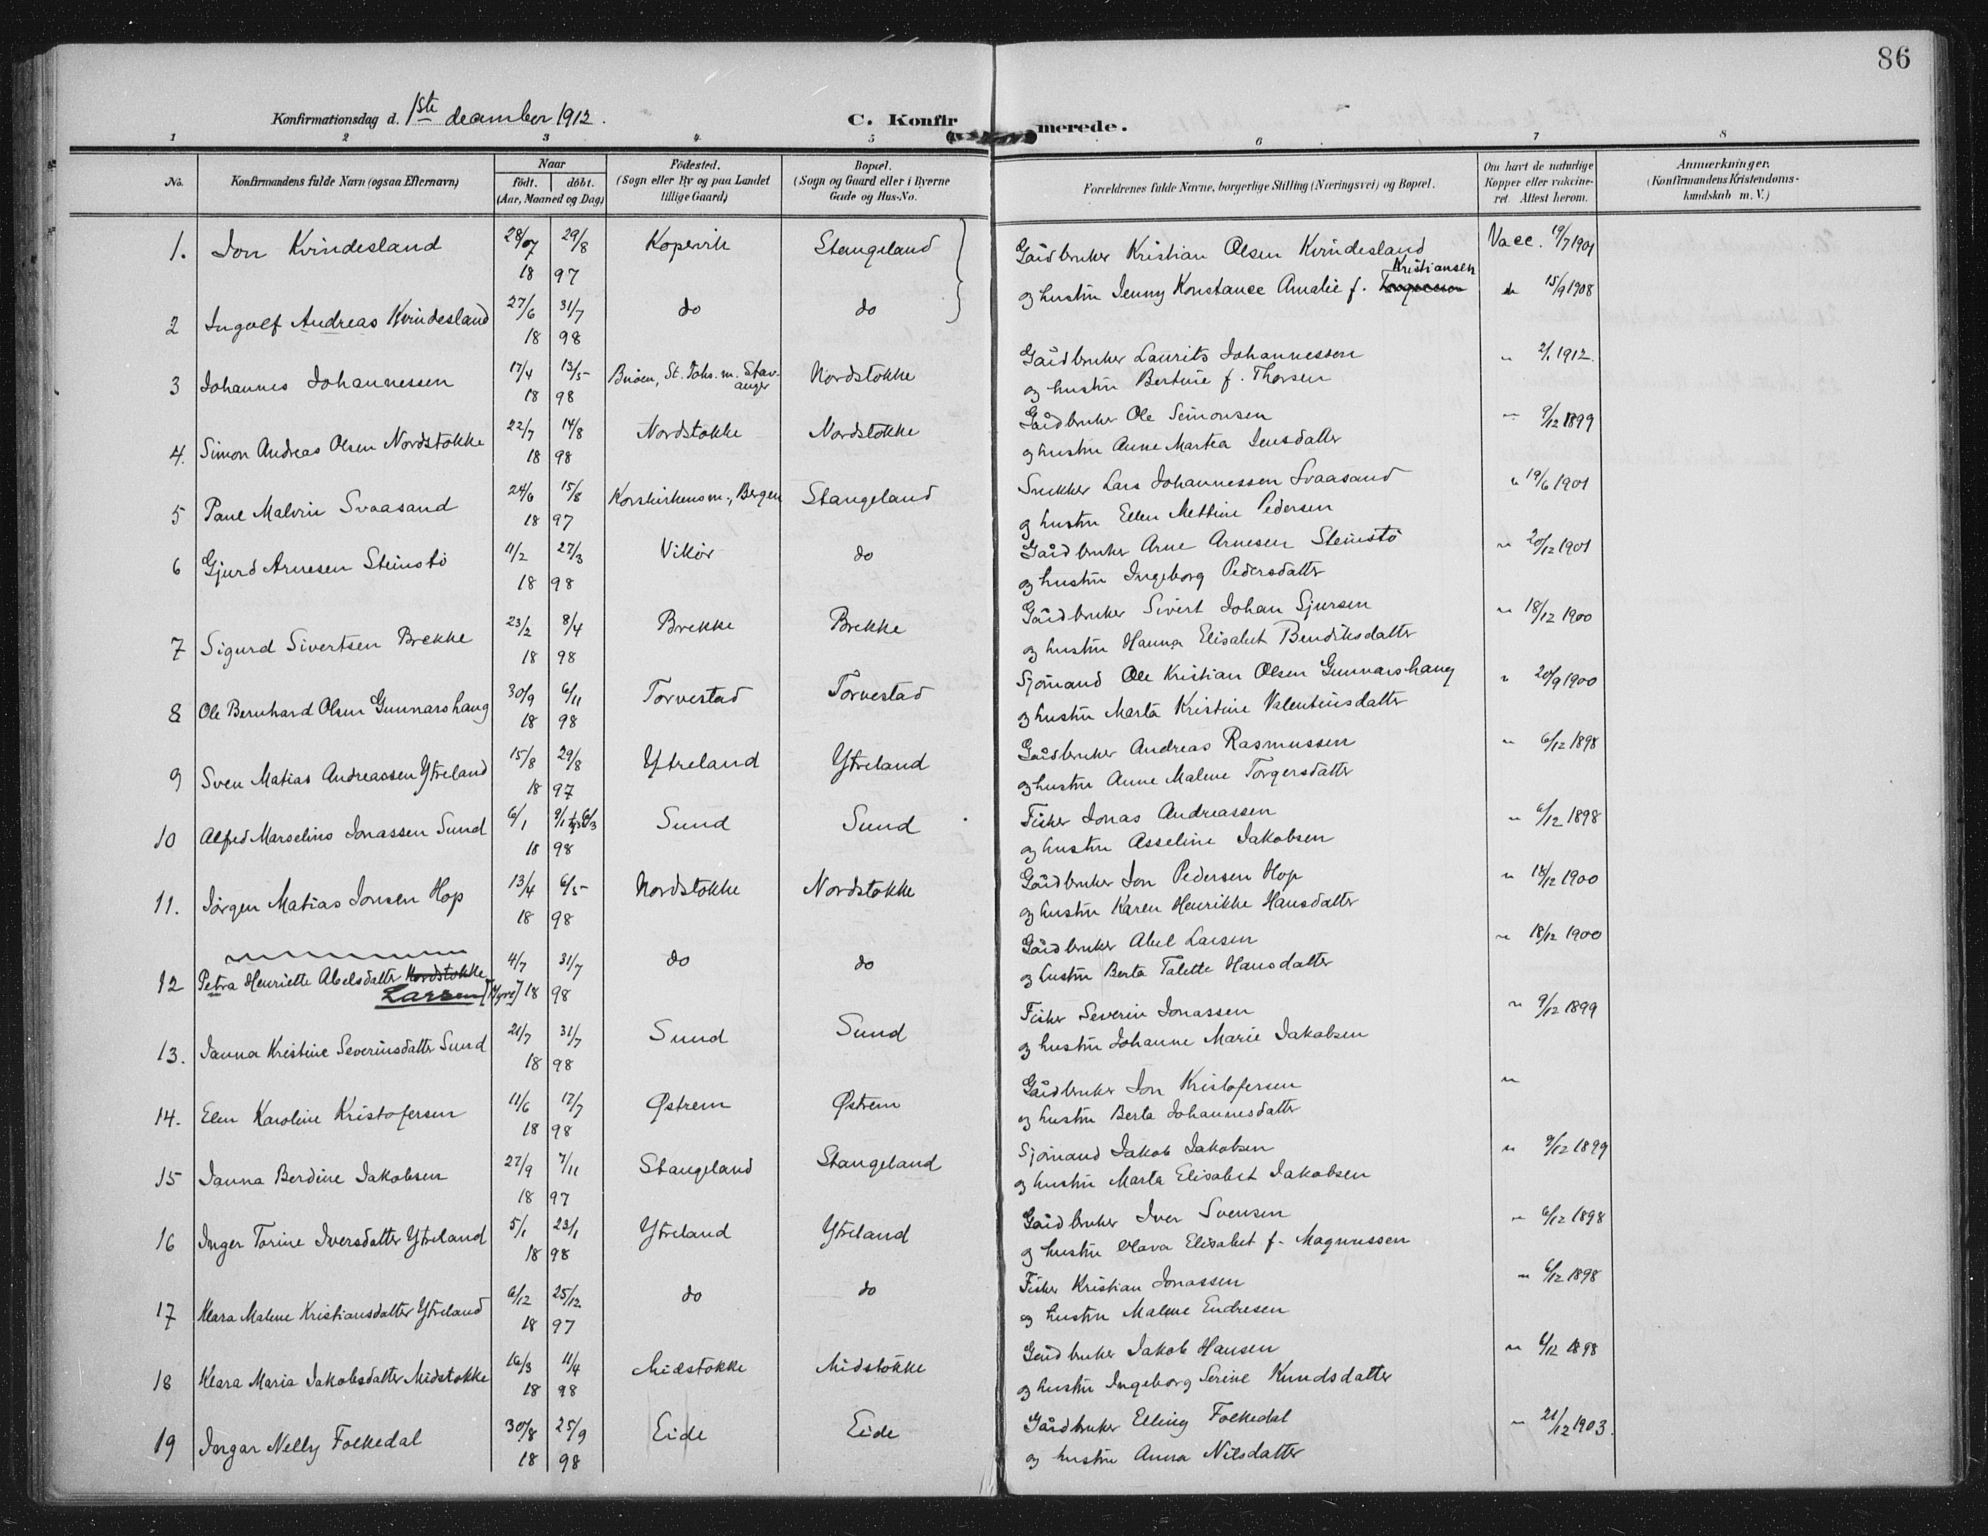 86
Konfirmationsdag d. 1ste december 1912.
C. Konfirmerede.
1 2 3 4 5 6 7 8
No.
Konfirmandens fulde Navn (ogsaa Efternavn)
Naar
født. | døbt.
(Aar, Maaned og Dag)
Fødested.
(Sogn eller By og paa Landet
tillige Gaard)
Bopæl.
(Sogn og Gaard eller i Byerne
Gade og Hus-No.
Forældrenes fulde Navne, borgerlige Stilling (Næringsvei) og Bopæl.
Om havt de naturlige
Kopper eller vakcine-
ret. Attest herom.
Anmærkninger.
(Konfirmandens Kristendoms-
kundskab m. V.)
1. Jon Kvindesland 28/07 29/8 Kopervik Stangeland Gårdbruker Kristian Olsen Kvindesland Vacc. 19/7 1901
18 97 Kristiansen
og hustru Jenny Konstance Amalie f. do 15/9 1908
2 Ingolf Andreas Kvindesland 27/6 31/7 do do
18 98
3 Johannes Johannessen 17/4 13/5 Buøen, St. Johs. m. Stav-anger Nordstokke Gårdbruker Laurits Johannessen " 2/1 1912.
18 98 og hustru Bertine f. Thorsen
4. Simon Andreas Olsen Nordstokke 22/7 14/8 Nordstokke Nordstokke Gårdbruker Ole Simonsen " 9/12 1899
18 98 og hustru Anne Martea Jensdatter
5 Paul Malvin Svaasand 24/6 15/8 Korskirkens m., Bergen Stangeland Snekker Lars Johannessen Svaasand " 19/6 1901
18 97 og hustru Ellen Mettine Pedersen
6 Gjurd Arnesen Steinstø 11/2 27/3 Vikør do Gårdbruker Arne Arnesen Steinstø " 20/12 1901
18 98 og hustru Ingeborg Pedersdatter
7 Sigurd Sivertsen Brekke 23/2 8/4 Brekke Brekke Gårdbruker Sivert Johan Sjursen " 18/12 1900
18 98 og hustru Hanna Elisabet Bendiksdatter
8 Ole Bernhard Olsen Gunnarshaug 30/9 6/11 Torvestad Torvestad Sjømand Ole Kristian Olsen Gunnarshaug " 20/9 1900
18 98 og hustru Marta Kristine Valentinsdatter
9 Sven Matias Andreassen Ytreland 15/8 29/8 Ytreland Ytreland Gårdbruker Andreas Rasmussen " 6/12 1898
18 97 og hustru Anne Malene Torgersdatter
10 Alfred Marselius Jonassen Sund 6/1 Sund Sund Fisker Jonas Andreassen " 6/12 1898
18 98 og hustru Asseline Jakobsen
11. Jørgen Matias Jonsen Hop 13/4 6/5 Nordstokke Nordstokke Gårdbruker Jon Pedersen Hop " 18/12 1900
18 98 og hustru Karen Henrikke Hansdatter
12 Petra Henriette Abelsdatter Nordstokke 4/7 31/7 do do Gårdbruker Abel Larsen " 18/12 1900
Larsen [Myre] 18 98 og hustru Berta Talette Hansdatter
13. Janna Kristine Severinsdatter Sund 21/7 31/7 Sund Sund Fisker Severin Jonassen " 9/12 1899
18 98 og hustru Johanne Marie Jakobsen
14. Elen Karoline Kristofersen 11/6 17/7 Østrem Østrem Gårdbruker Jon Kristofersen "
18 98 og hustru Berta Johannesdatter
15 Janna Berdine Jakobsen 27/9 7/11 Stangeland Stangeland Sjømand Jakob Jakobsen " 9/12 1899
18 97 og hustru Marta Elisabet Jakobsen
16 Inger Torine Iversdatter Ytreland 5/1 23/1 Ytreland Ytreland Gårdbruker Iver Svensen " 6/12 1898
18 98 og hustru Olava Elisabet f. Magnussen
17 Klara Malene Kristiansdatter Ytreland 6/12 25/12 do do Fisker Kristian Jonassen " 6/12 1898
18 97 og hustru Malene Endresen
18 Klara Maria Jakobsdatter Midstokke 16/3 11/4 Midstokke Midstokke Gårdbruker Jakob Hansen " 6/12 1898
18 98 og hustru Ingeborg Serine Knudsdatter
19 Ingar Nelly Folkedal 30/8 25/9 Eide Eide Gårdbruker Elling Folkedal " 21/12 1903.
18 98 og hustru Anna Nilsdatter